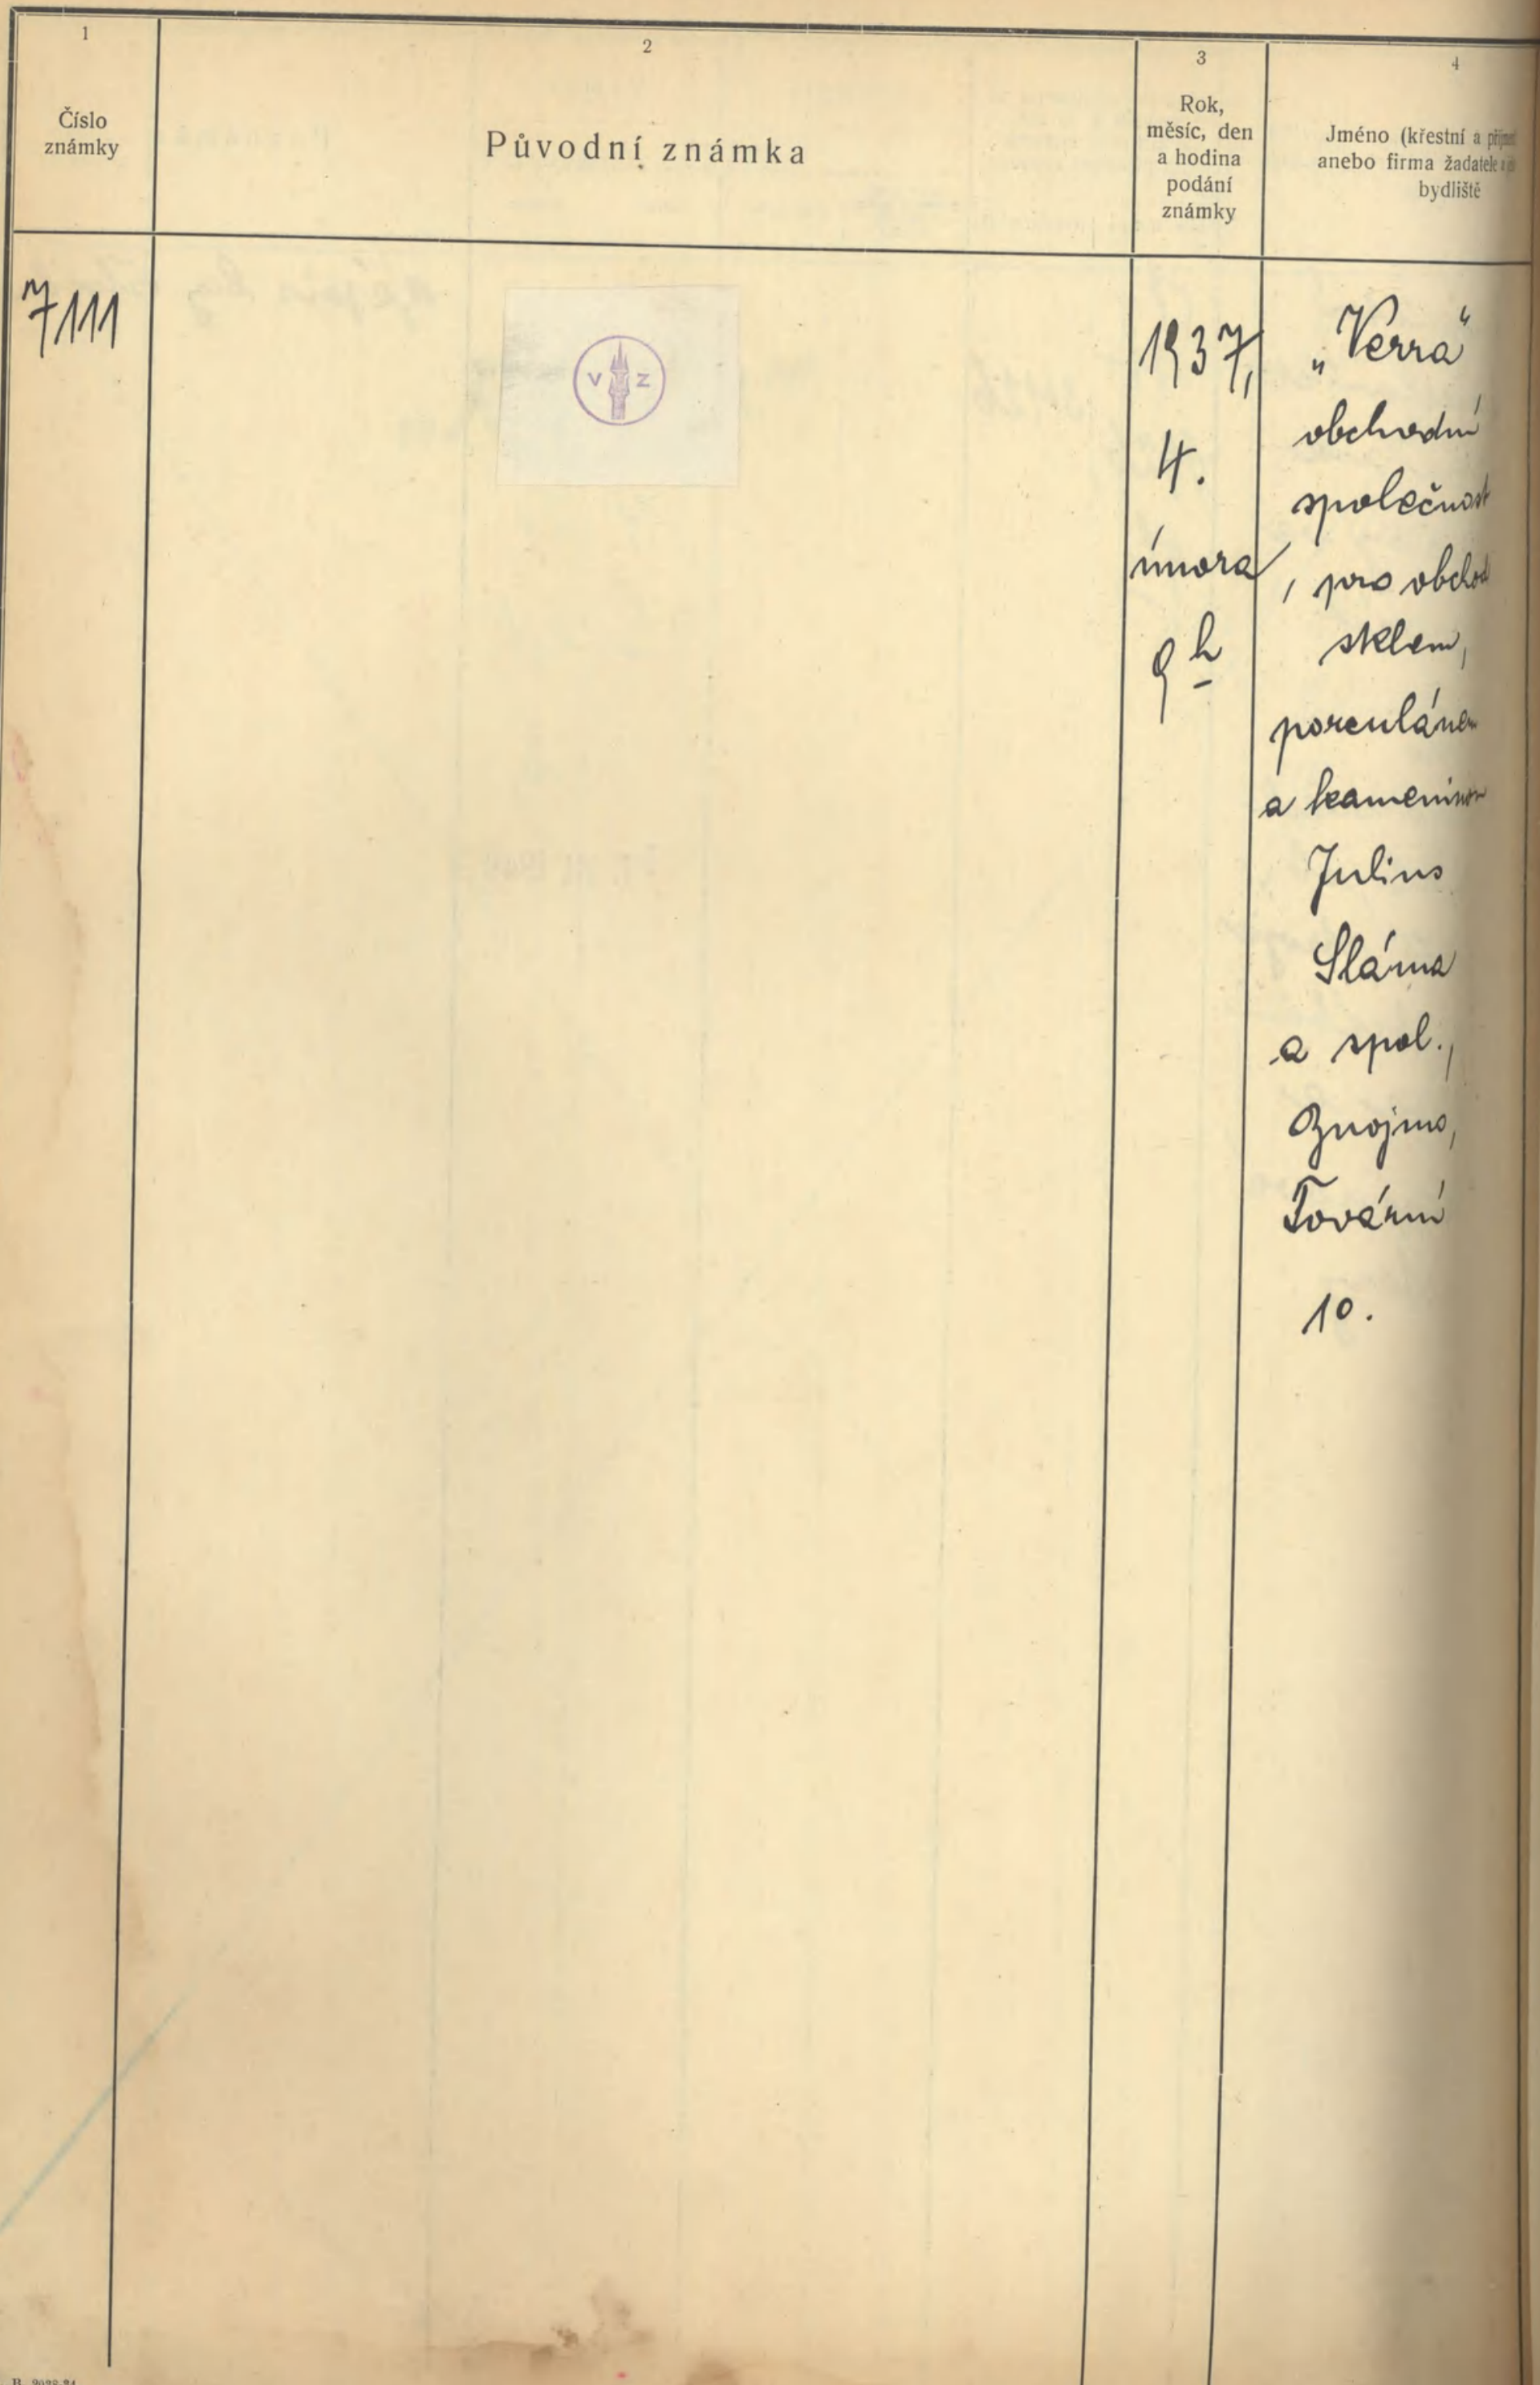 1
Číslo
známky
2
Původní známka
3
Rok,
měsíc, den
a hodina
podání
známky
4
Jméno (křestní a
anebo firma žadatele
bydliště
7111
V Z
1937,
4.
února
9 h
„Verra"
obchodní
společnost
, pro obchod
sklem,
porculánem
a kameninou
Julius
Sláma
a spol.,
Znojmo,
Tovární
10.